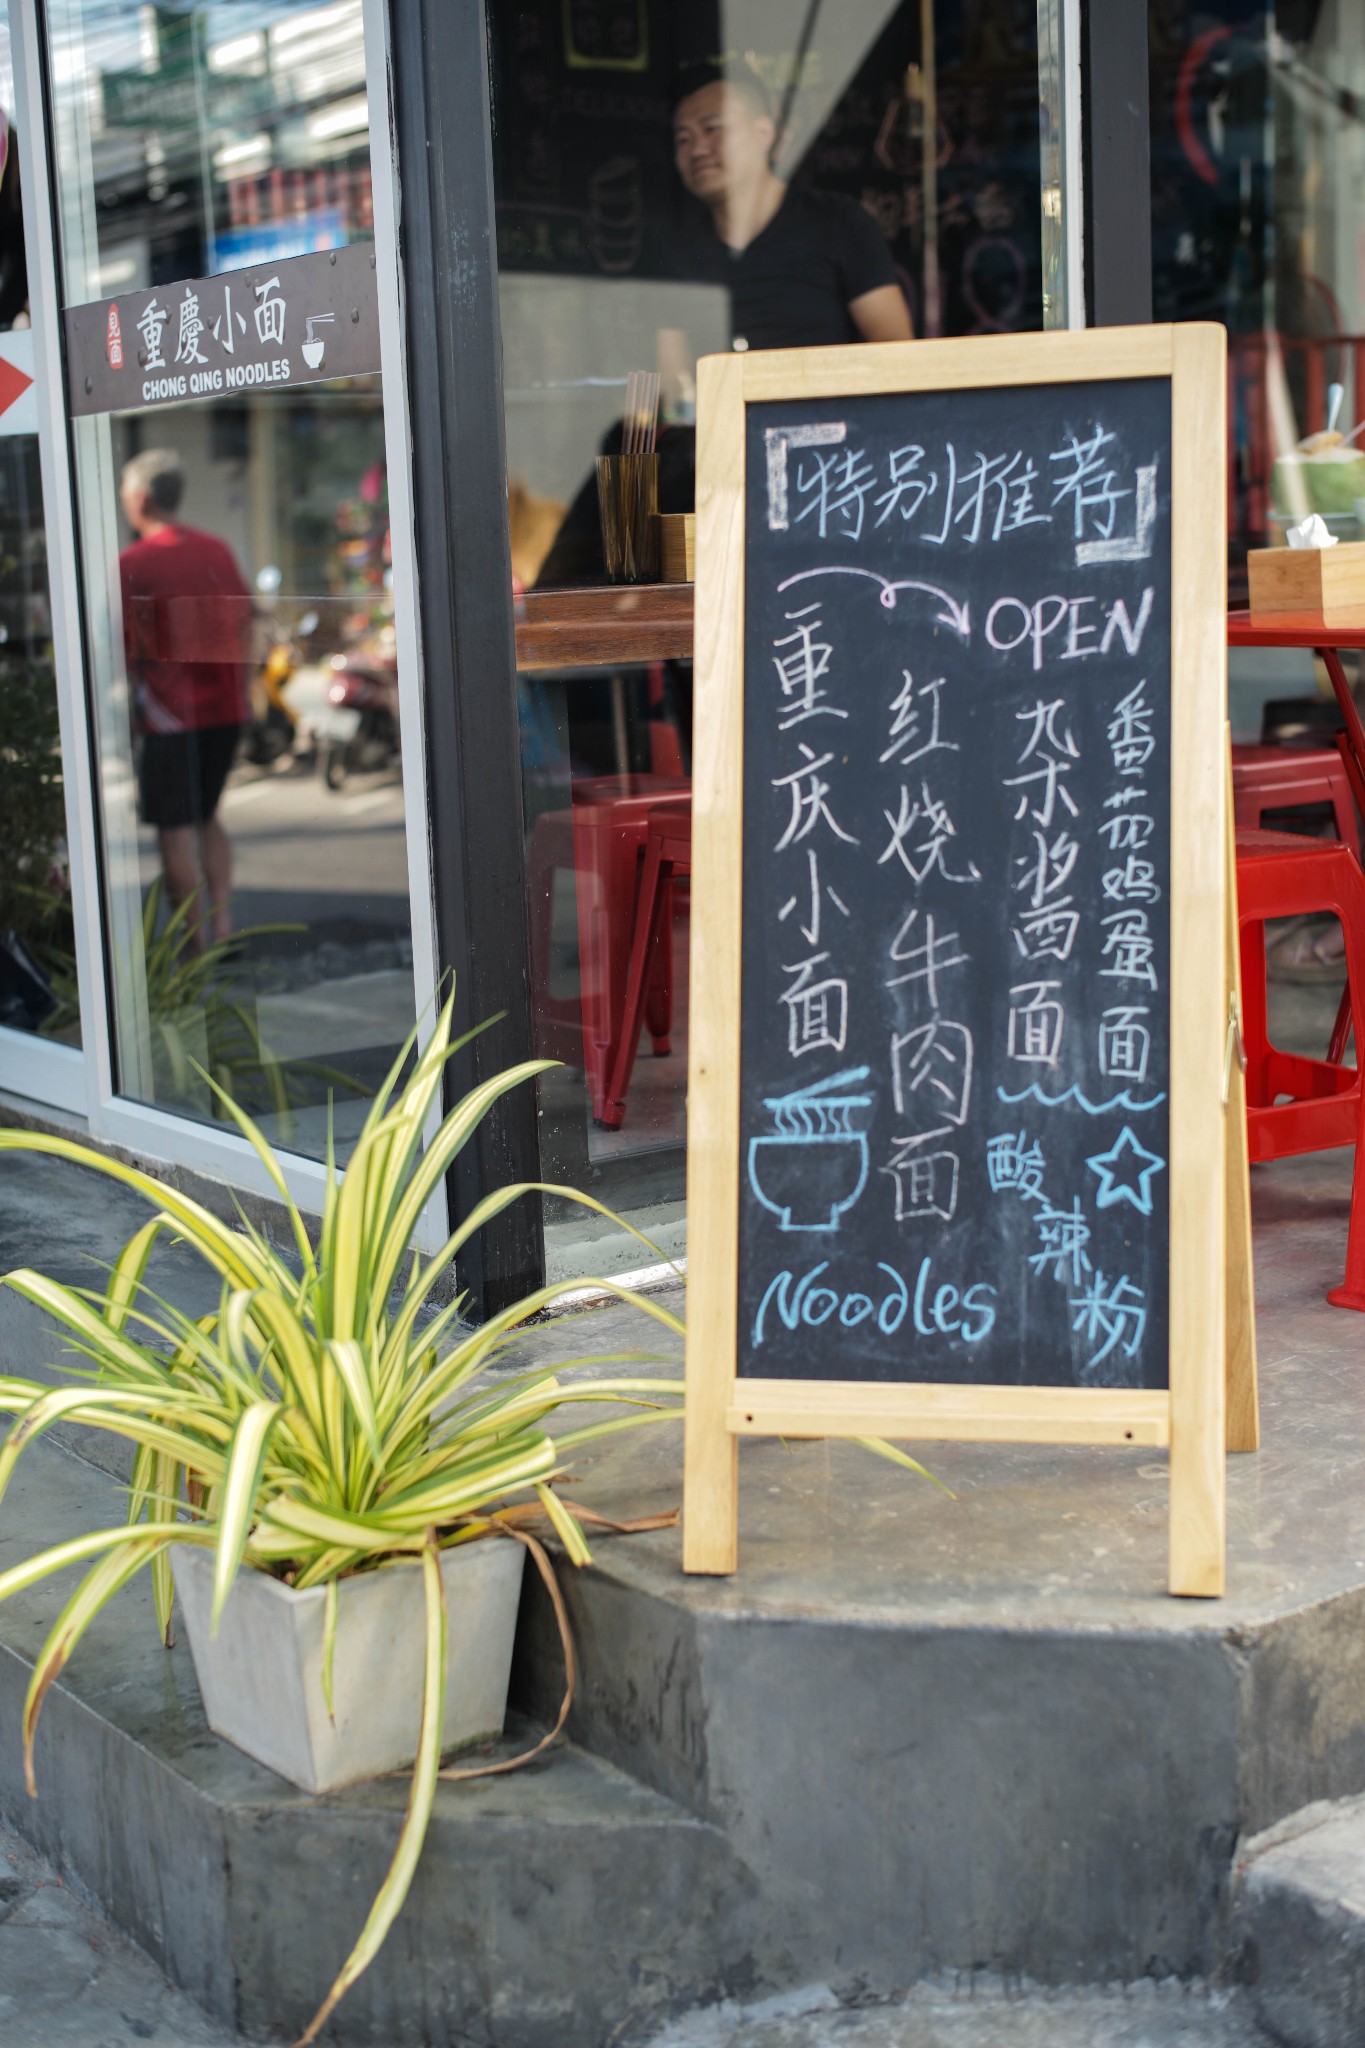 見面
重慶小面
CHONG QING NOODLES
「特别推荐」
OPEN
重庆小面
红烧牛肉面
杂酱面
番茄鸡蛋面
酸辣粉
Noodles